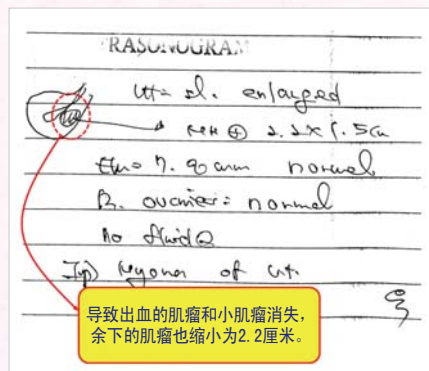 RASONOGRAM
Ut= sl. enlarged
⊕ 2.2 x 1.5cm
normal
B. ovaries: normal
no fluid
Imp) Myoma of ut.
导致出血的肌瘤和小肌瘤消失，
余下的肌瘤也缩小为2.2厘米。